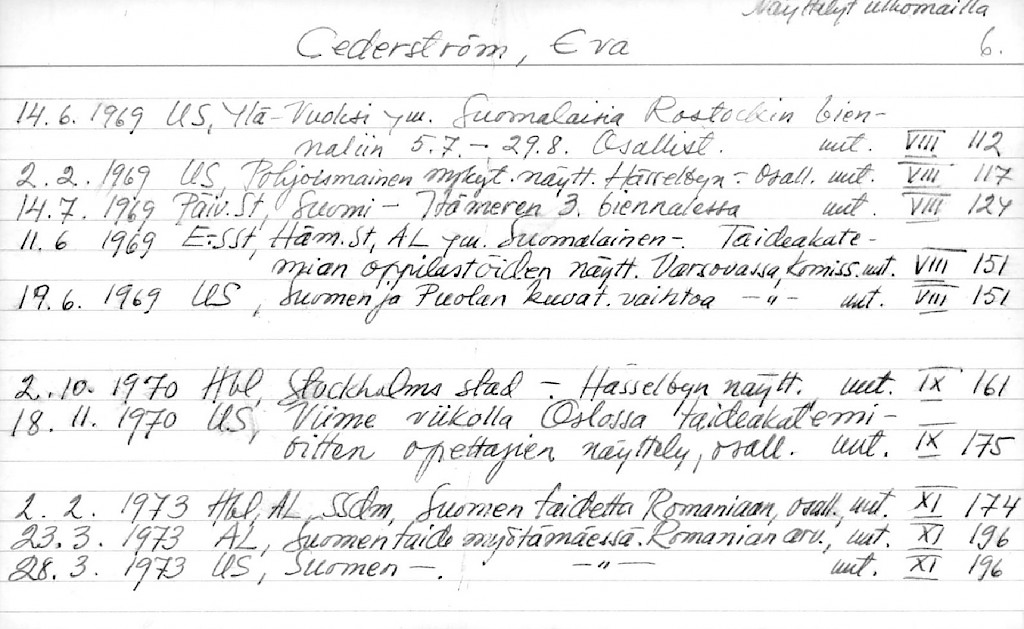 Näyttelyt ulkomailla
Cederström, Eva 6.
14.6.1969 US, Ylä-Vuoksi ym. Suomalaisia Rostockin bien-
naliin 5.7.-29.8. Osallist. uut. VIII 112
2.2.1969 US, Pohjoismainen nykyt. näytt. Hässelbyn - osall. uut. VIII 117
14.7.1969 Päiv.St, Suomi - Itämeren 3. biennalessa uut. VIII 124
11.6 1969 E-SSt, Häm.St, AL ym. Suomalainen-. Taideakate-
mian oppilastöiden näytt. Varsovassa, komiss. uut. VIII 151
19.6.1969 US, Suomen ja Puolan kuvat. vaihtoa -"- uut. VIII 151
2.10.1970 Hbl, Stockholms stad - Hässelbyn näytt. uut. IX 161
18.11.1970 US, Viime viikolla Oslossa taideakatemi-
oitten opettajien näyttely, osall. uut. IX 175
2.2.1973 Hbl, AL, SSdm, Suomen taidetta Romaniaan, osall., uut. XI 174
23.3.1973 AL, Suomen taide myötämäessä. Romanian arv., uut. XI 196
28.3.1973 US, Suomen -. -"- uut. XI 196